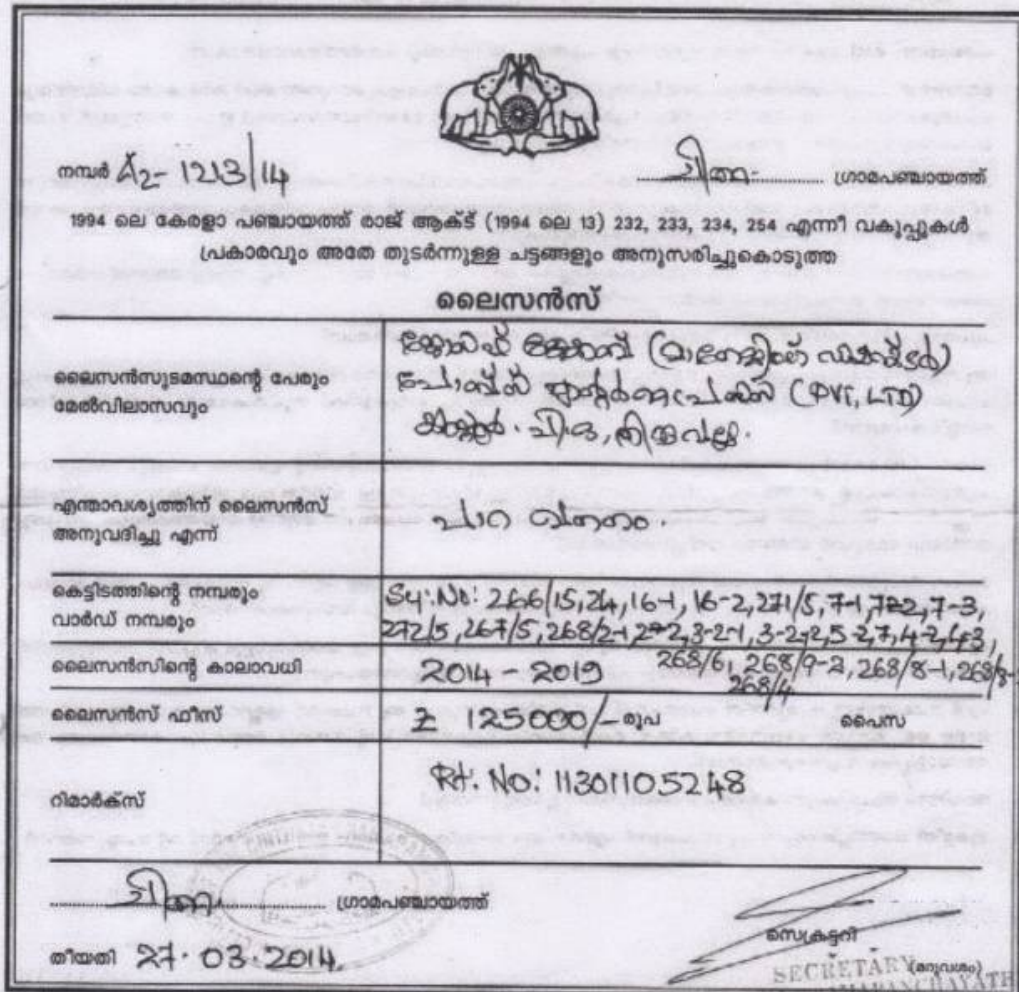 നമ്പർ A2-1213/14 ചിതറ ഗ്രാമപഞ്ചായത്ത്
1994 ലെ കേരളാ പഞ്ചായത്ത് രാജ് ആക്ട് (1994 ലെ 13) 232, 233, 234, 254 എന്നീ വകുപ്പുകൾ
പ്രകാരവും അതേ തുടർന്നുള്ള ചട്ടങ്ങളും അനുസരിച്ചുകൊടുത്ത
ലൈസൻസ്
ലൈസൻസുടമസ്ഥന്റെ പേരും
മേൽവിലാസവും
ജോസഫ് ജേക്കബ് (മാനേജിംഗ് ഡയറക്ടർ)
(PVT, LTD)
പി.ഒ, തിരുവല്ല.
എന്താവശ്യത്തിന് ലൈസൻസ്
അനുവദിച്ചു എന്ന്
പാറ ഖനനം.
കെട്ടിടത്തിന്റെ നമ്പരും
വാർഡ് നമ്പരും
Sy: No: 266/15,24,16-1,16-2,271/5,7-1,7-2,7-3,
272/5,267/5,268/2-1,2-2,3-2-1,3-2-2,5-2,7,4-2,4-3,
268/6, 268/9-2, 268/8-1,
268/4
ലൈസൻസിന്റെ കാലാവധി 2014 - 2019
ലൈസൻസ് ഫീസ് 125000/- രൂപ പൈസ
റിമാർക്സ് Rt: No: 113011105248
ചിതറ ഗ്രാമപഞ്ചായത്ത്
തീയതി 27.03.2014.
സെക്രട്ടറി
(മറുവശം)
SECRETARY